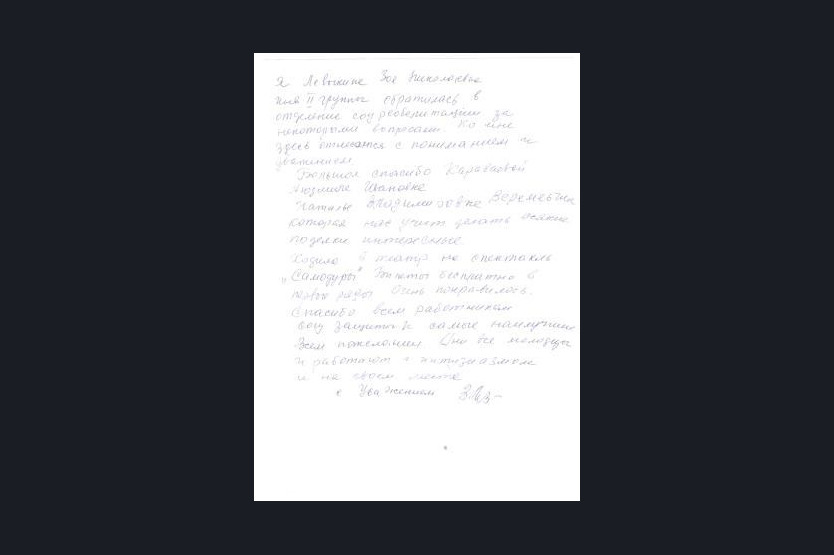 Я Левыкина Зоя Николаевна
II группы обратилась в
отделение соц реабилитации за
некоторыми вопросами. Ко мне
здесь отнеслись с пониманием и
уважением.
Большое спасибо
Людмиле Ивановне
Наталье Владимировне
которая нас учит делать всякие
поделки интересные
Ходила в театр на спектакль
"Самодуры" Билеты бесплатно в
Очень понравилось.
Спасибо всем работникам
соц защиты и самые наилучшие
Всем пожелания Они все молодцы
и работают с энтузиазмом
и на своем месте
с Уважением